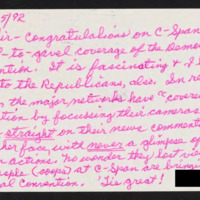 5/92
ir - congratulations on C-Span
l-to-gavel coverage of the Democ
ntion. It is fascinating & I l
to the Republicans, also. In re
the major networks have "covere
tion by focussing their cameras
straight on their news comment
her face, with never a glimpse of
r actions. No wonder they lost vie
eople (oops) at C-Span are bringin
al Convention. 'Tis great!